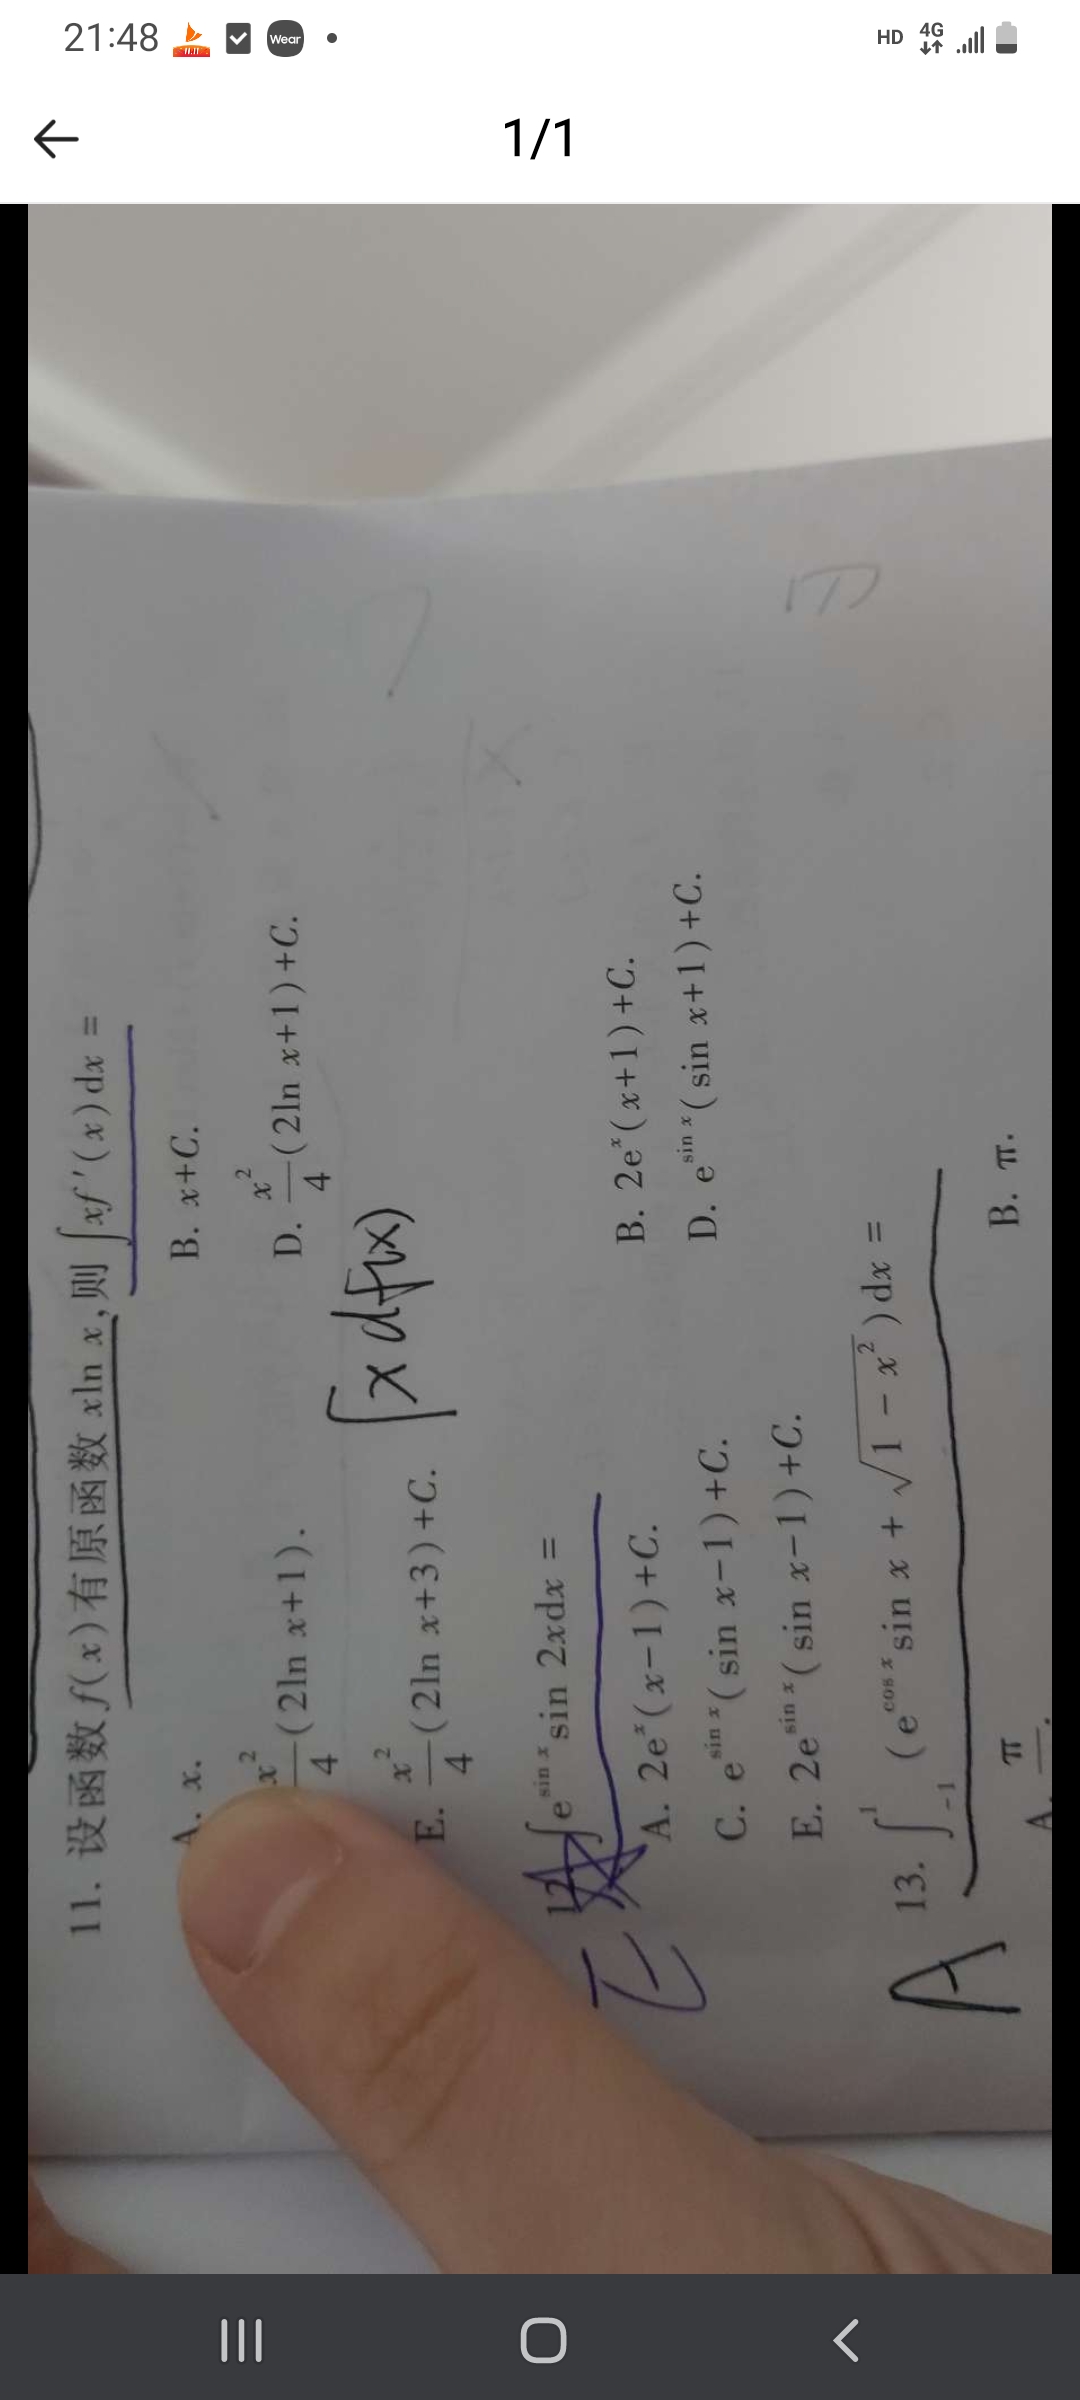 21:48
Wear
HD 4G
1/1
11. 设函数 f(x) 有原函数 xln x,则 ∫xf′(x)dx =
A. x.
B. x+C.
x²/4(2ln x+1).
D. x²/4(2ln x+1)+C.
E. x²/4(2ln x+3)+C.
∫x df(x)
12. ∫e^(sin x) sin 2xdx =
A. 2eˣ(x−1)+C.
B. 2eˣ(x+1)+C.
C. e^(sin x)(sin x−1)+C.
D. e^(sin x)(sin x+1)+C.
E. 2e^(sin x)(sin x−1)+C.
E
A
13. ∫₋₁¹ (e^(cos x) sin x + √(1 − x²))dx =
A. π
B. π.